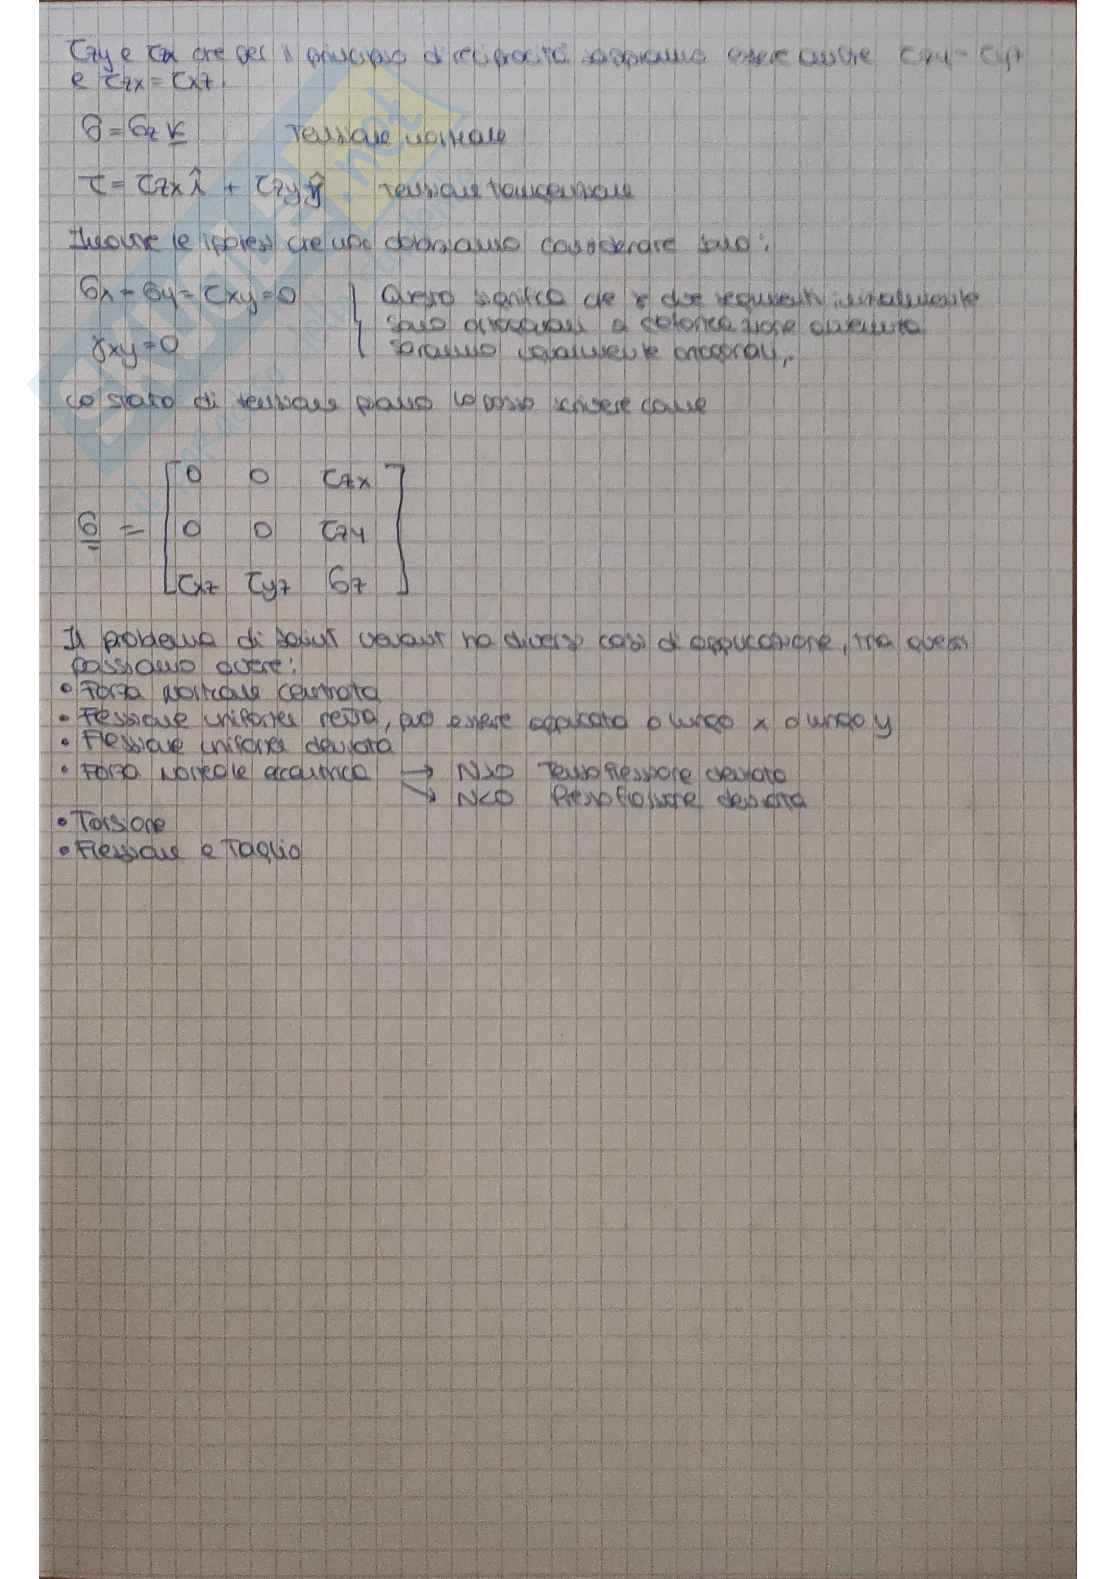 τzy e τzx che per il principio di reciprocità sappiamo essere anche τzy = τyz
e τzx = τxz.
σ = σz k Tensione normale
τ = τzx î + τzy ĵ Tensione tangenziale
Inoltre le ipotesi che noi dobbiamo considerare sono:
σx = σy = τxy = 0 Questo significa che se due segmenti inizialmente
sono ortogonali a deformazione avvenuta
γxy = 0 saranno ugualmente ortogonali.
Lo stato di tensione piano lo posso scrivere come
0 0 τzx
σ = 0 0 τzy
τxz τyz σz
Il problema di Saint Venant ha diversi casi di applicazione, tra questi
possiamo avere:
• Forza normale centrata
• Flessione uniforme retta, può essere applicata o lungo x o lungo y
• Flessione uniforme deviata
• Forza normale eccentrica → N>0 Tensoflessione deviata
→ N<0 Pressoflessione deviata
• Torsione
• Flessione e Taglio
SKUOLA.net